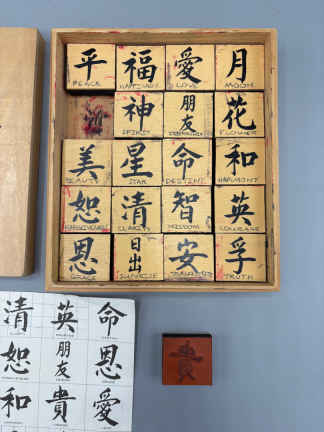 平 福 愛 月
PEACE HAPPINESS LOVE MOON
神 朋友 花
SPIRIT FRIENDSHIP FLOWER
美 星 命 和
BEAUTY STAR DESTINY HARMONY
恕 清 智 英
FORGIVENESS CLARITY WISDOM COURAGE
恩 日出 安 孚
GRACE SUNRISE TRUTH
清 英 命
恕 朋友 恩
和 貴 愛
貴